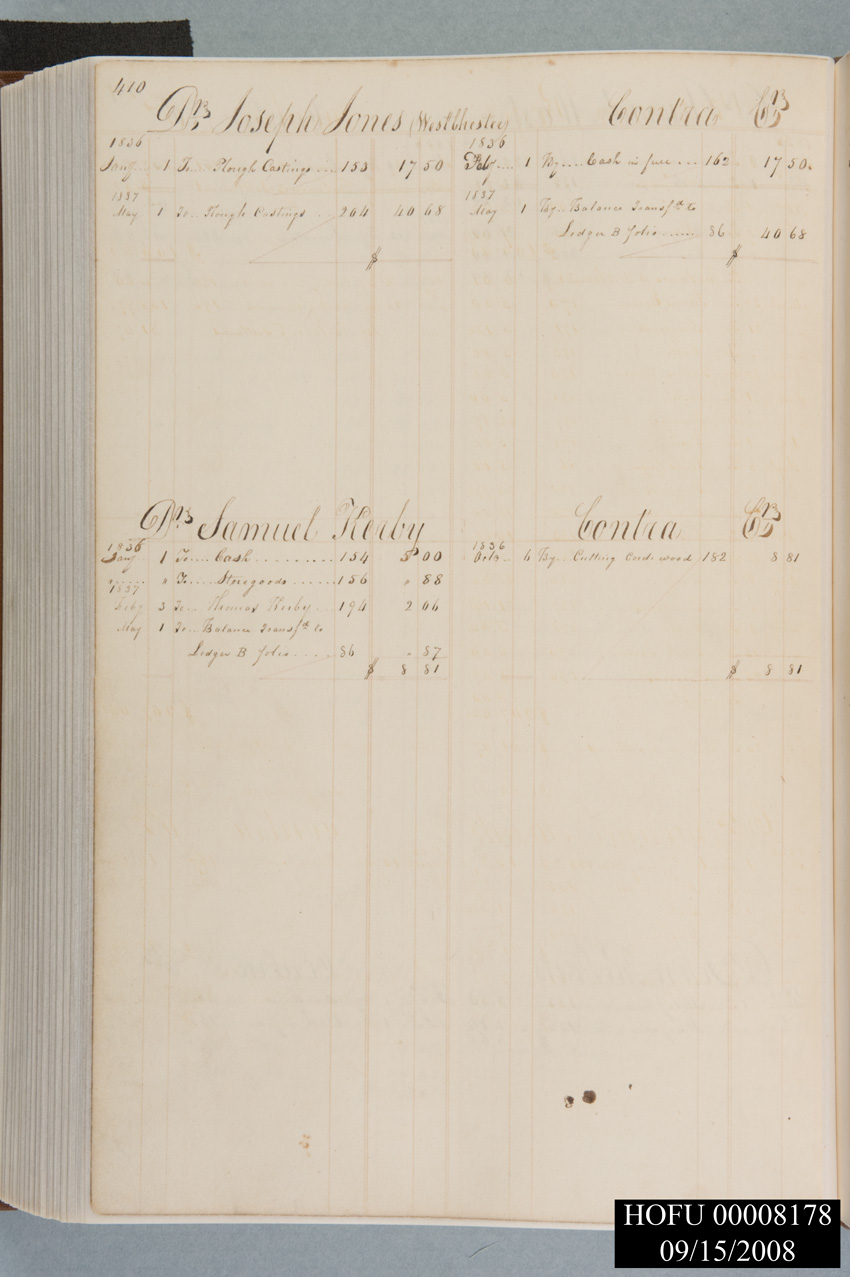 410
Dr. Joseph Jones (Westchester) Contra Cr.
1836 1836
Jany 1 To.... Plough Castings .... 153 17 50 Feby .... 1 By.... Cash in full ... 162 17 50
1837 1837
May 1 To.. Plough Castings ... 204 40 68 May 1 By.. Balance Transfd to
Ledger B folio...... 86 40 68
$ $
Dr. Samuel Kerby Contra Cr.
1836 1836
Jany 1 To.... Cash ......... 154 5 00 Octo.. 4 By.. Cutting Cordwood 182 8 81
"...... " To.... Storegoods ...... 156 " 88
1837
Feby 3 To... Thomas Kerby ... 194 2 06
May 1 To.. Balance Transfd to
Ledger B folio...... 86 " 87
$ 8 81 $ 8 81
HOFU 00008178
09/15/2008